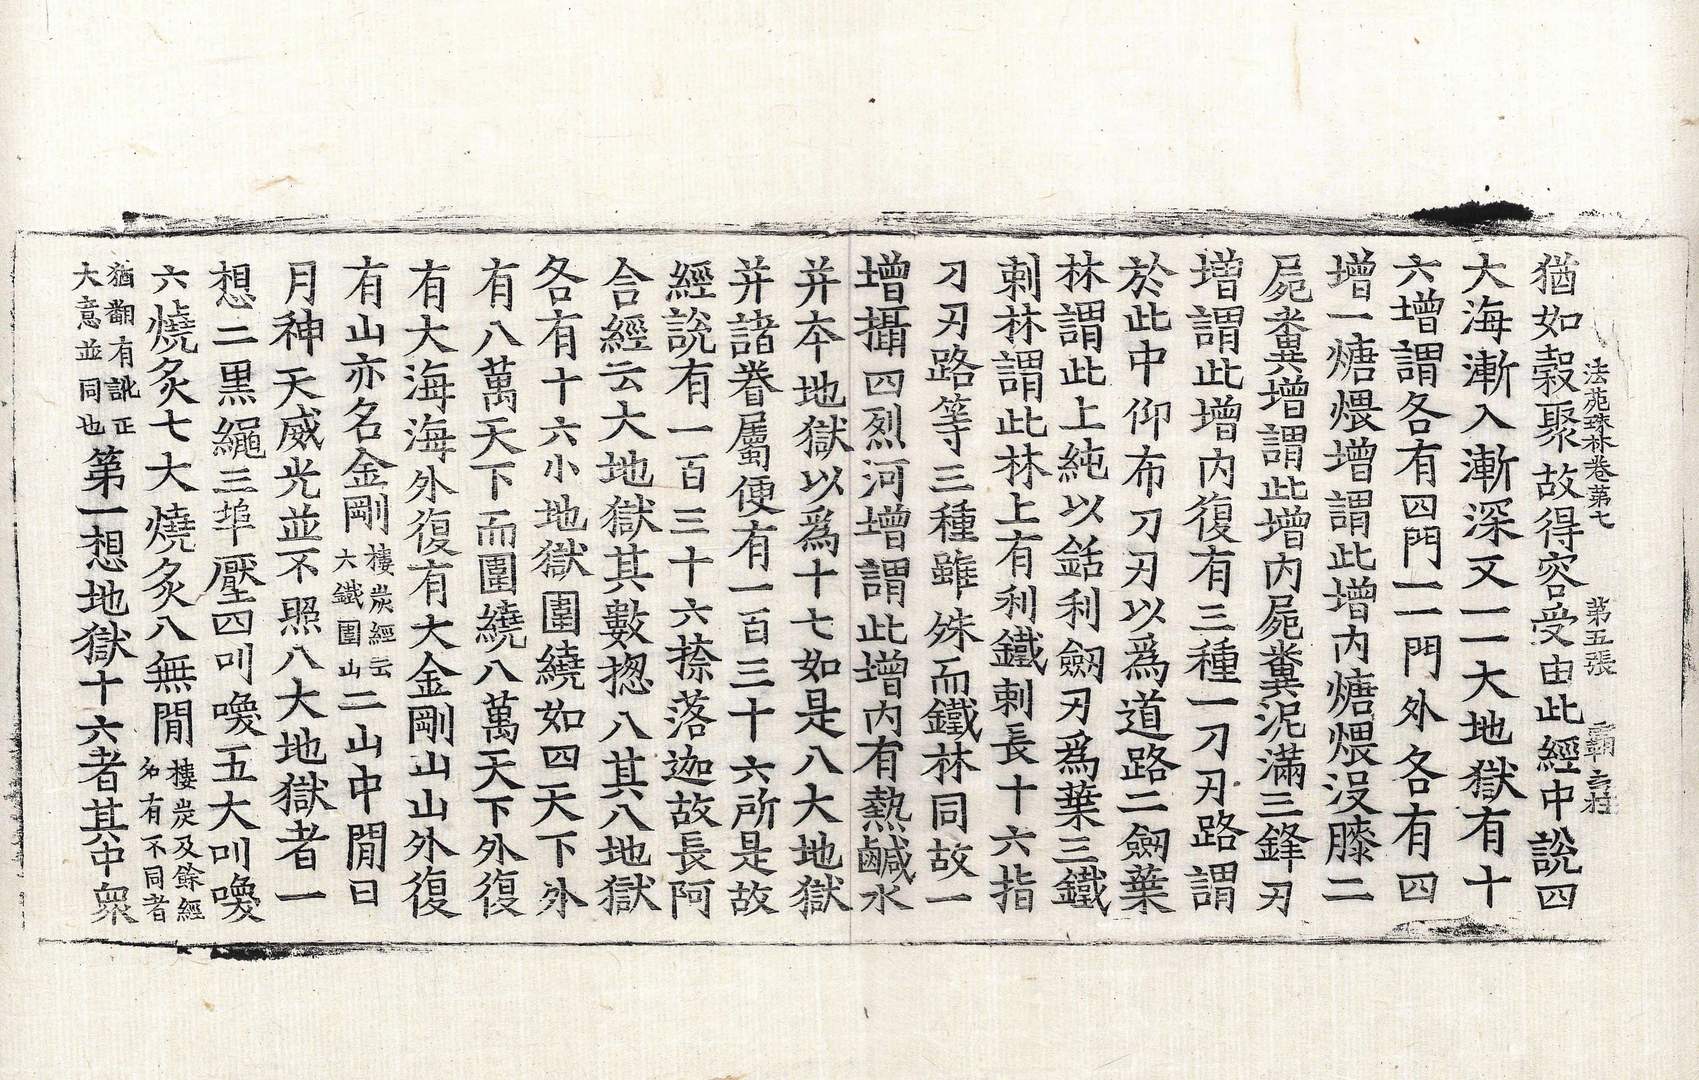 法苑珠林卷第七 第五張 覇
猶如穀聚故得容受由此經中說四
大海漸入漸深又一一大地獄有十
六增謂各有四門一一門外各有四
增一煻煨增謂此增內煻煨沒膝二
屍糞增謂此增內屍糞泥滿三鋒刃
增謂此增內復有三種一刀刃路謂
於此中仰布刀刃以爲道路二劒葉
林謂此上純以銛利劒刃爲葉三鐵
刺林謂此林上有利鐵刺長十六指
刀刃路等三種雖殊而鐵林同故一
增攝四烈河增謂此增內有熱鹹水
并夲地獄以爲十七如是八大地獄
并諸眷屬便有一百三十六所是故
經說有一百三十六捺落迦故長阿
含經云大地獄其數揔八其八地獄
各有十六小地獄圍繞如四天下外
有八萬天下而圍繞八萬天下外復
有大海海外復有大金剛山山外復
有山亦名金剛樓炭經云六鐵圍山二山中閒日
月神天威光並不照八大地獄者一
想二黑繩三埠壓四叫喚五大叫喚
六燒炙七大燒炙八無閒樓炭及餘經名有不同者
猶翻有訛正大意並同也第一想地獄十六者其中衆